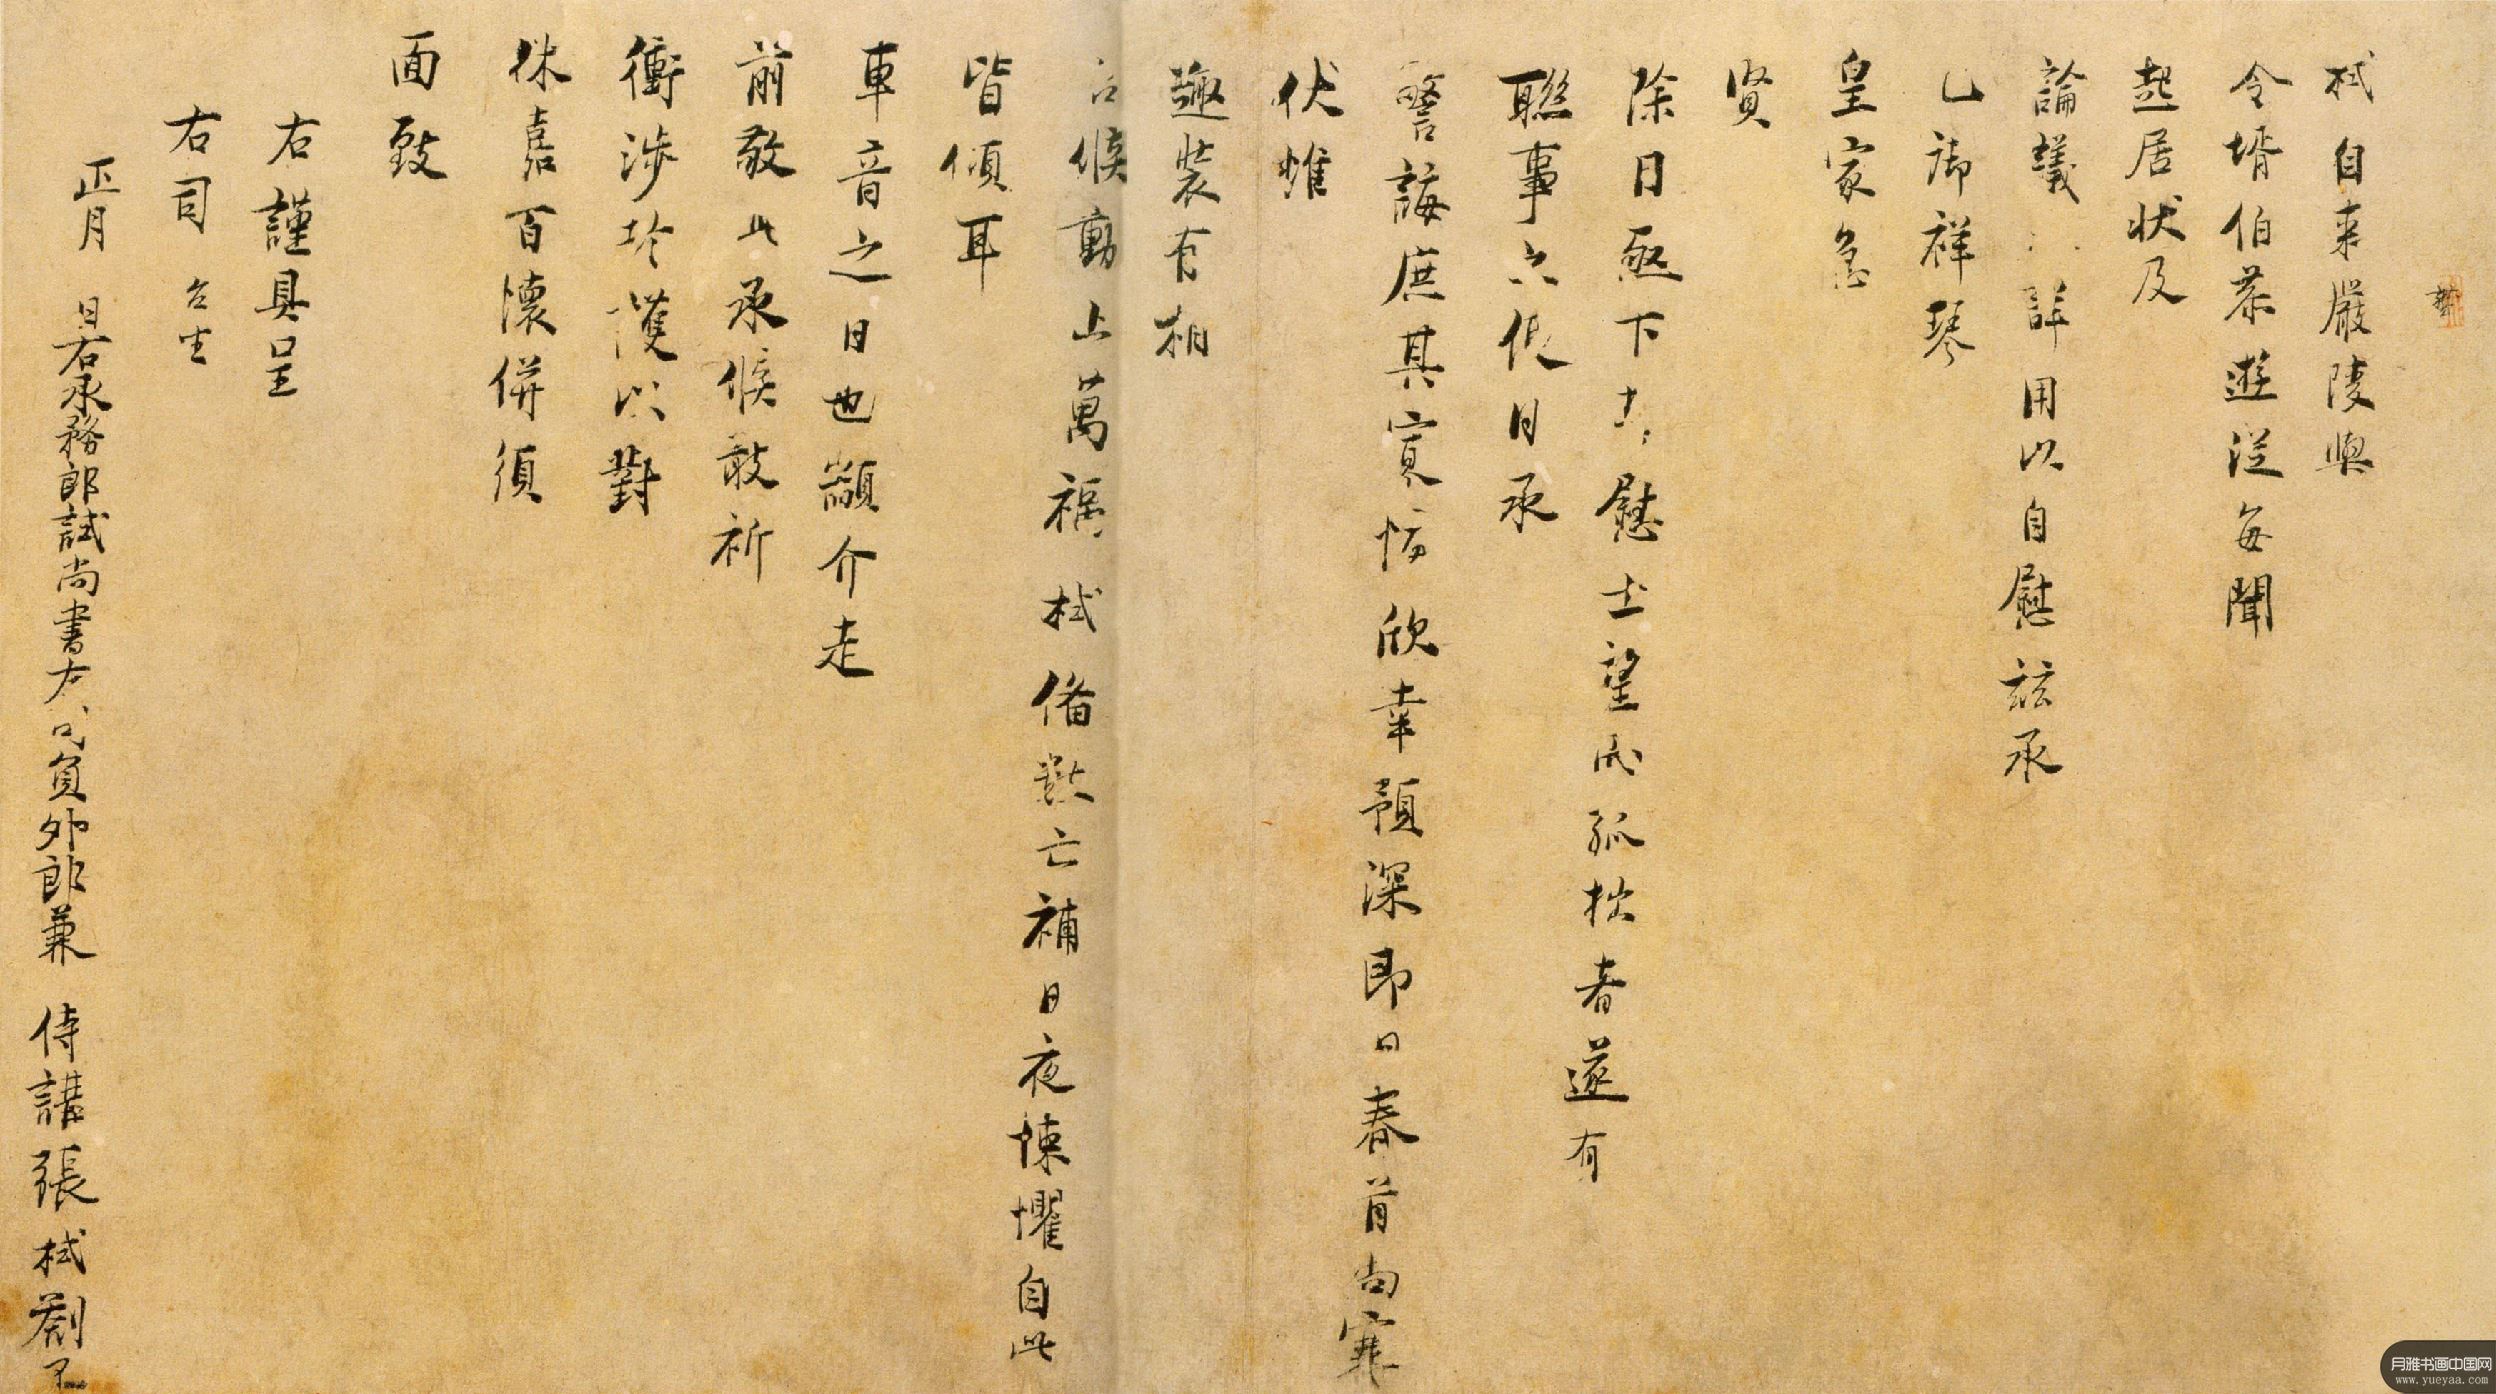 栻自来嚴陵與
令壻伯恭遊從每聞
起居狀及
論議詳用以自慰兹承
已御祥琴
皇家急
賢
除日亟下士慰士望而孤拙者遂有
聯事六伋日承
警誨庶其寡悔欣幸預深即日春首尚寒
伏惟
趣裝有相
台候動止萬福栻備數亡補日夜悚懼自此
皆傾耳
車音之日也顓介走
前敬此承候敢祈
衝涉珍護以對
休嘉百懷併須
面致
右謹具呈
右司台坐
正月日右承務郎試尚書左司員外郎兼侍講張栻劄子
月雅书画中国网
www.yueyaa.com